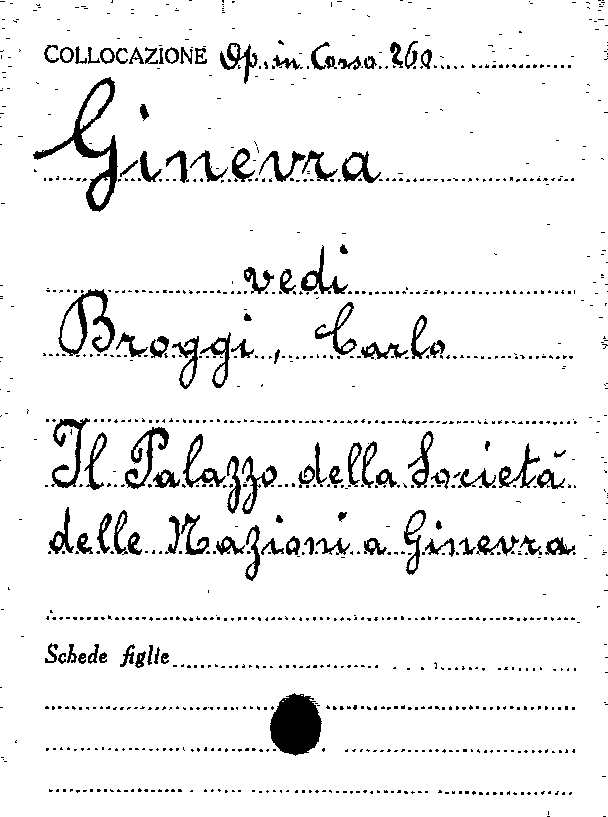 COLLOCAZIONE Op. in Corso 260
Ginevra
vedi
Broggi, Carlo
Il Palazzo della Società
delle Nazioni a Ginevra
Schede figlie